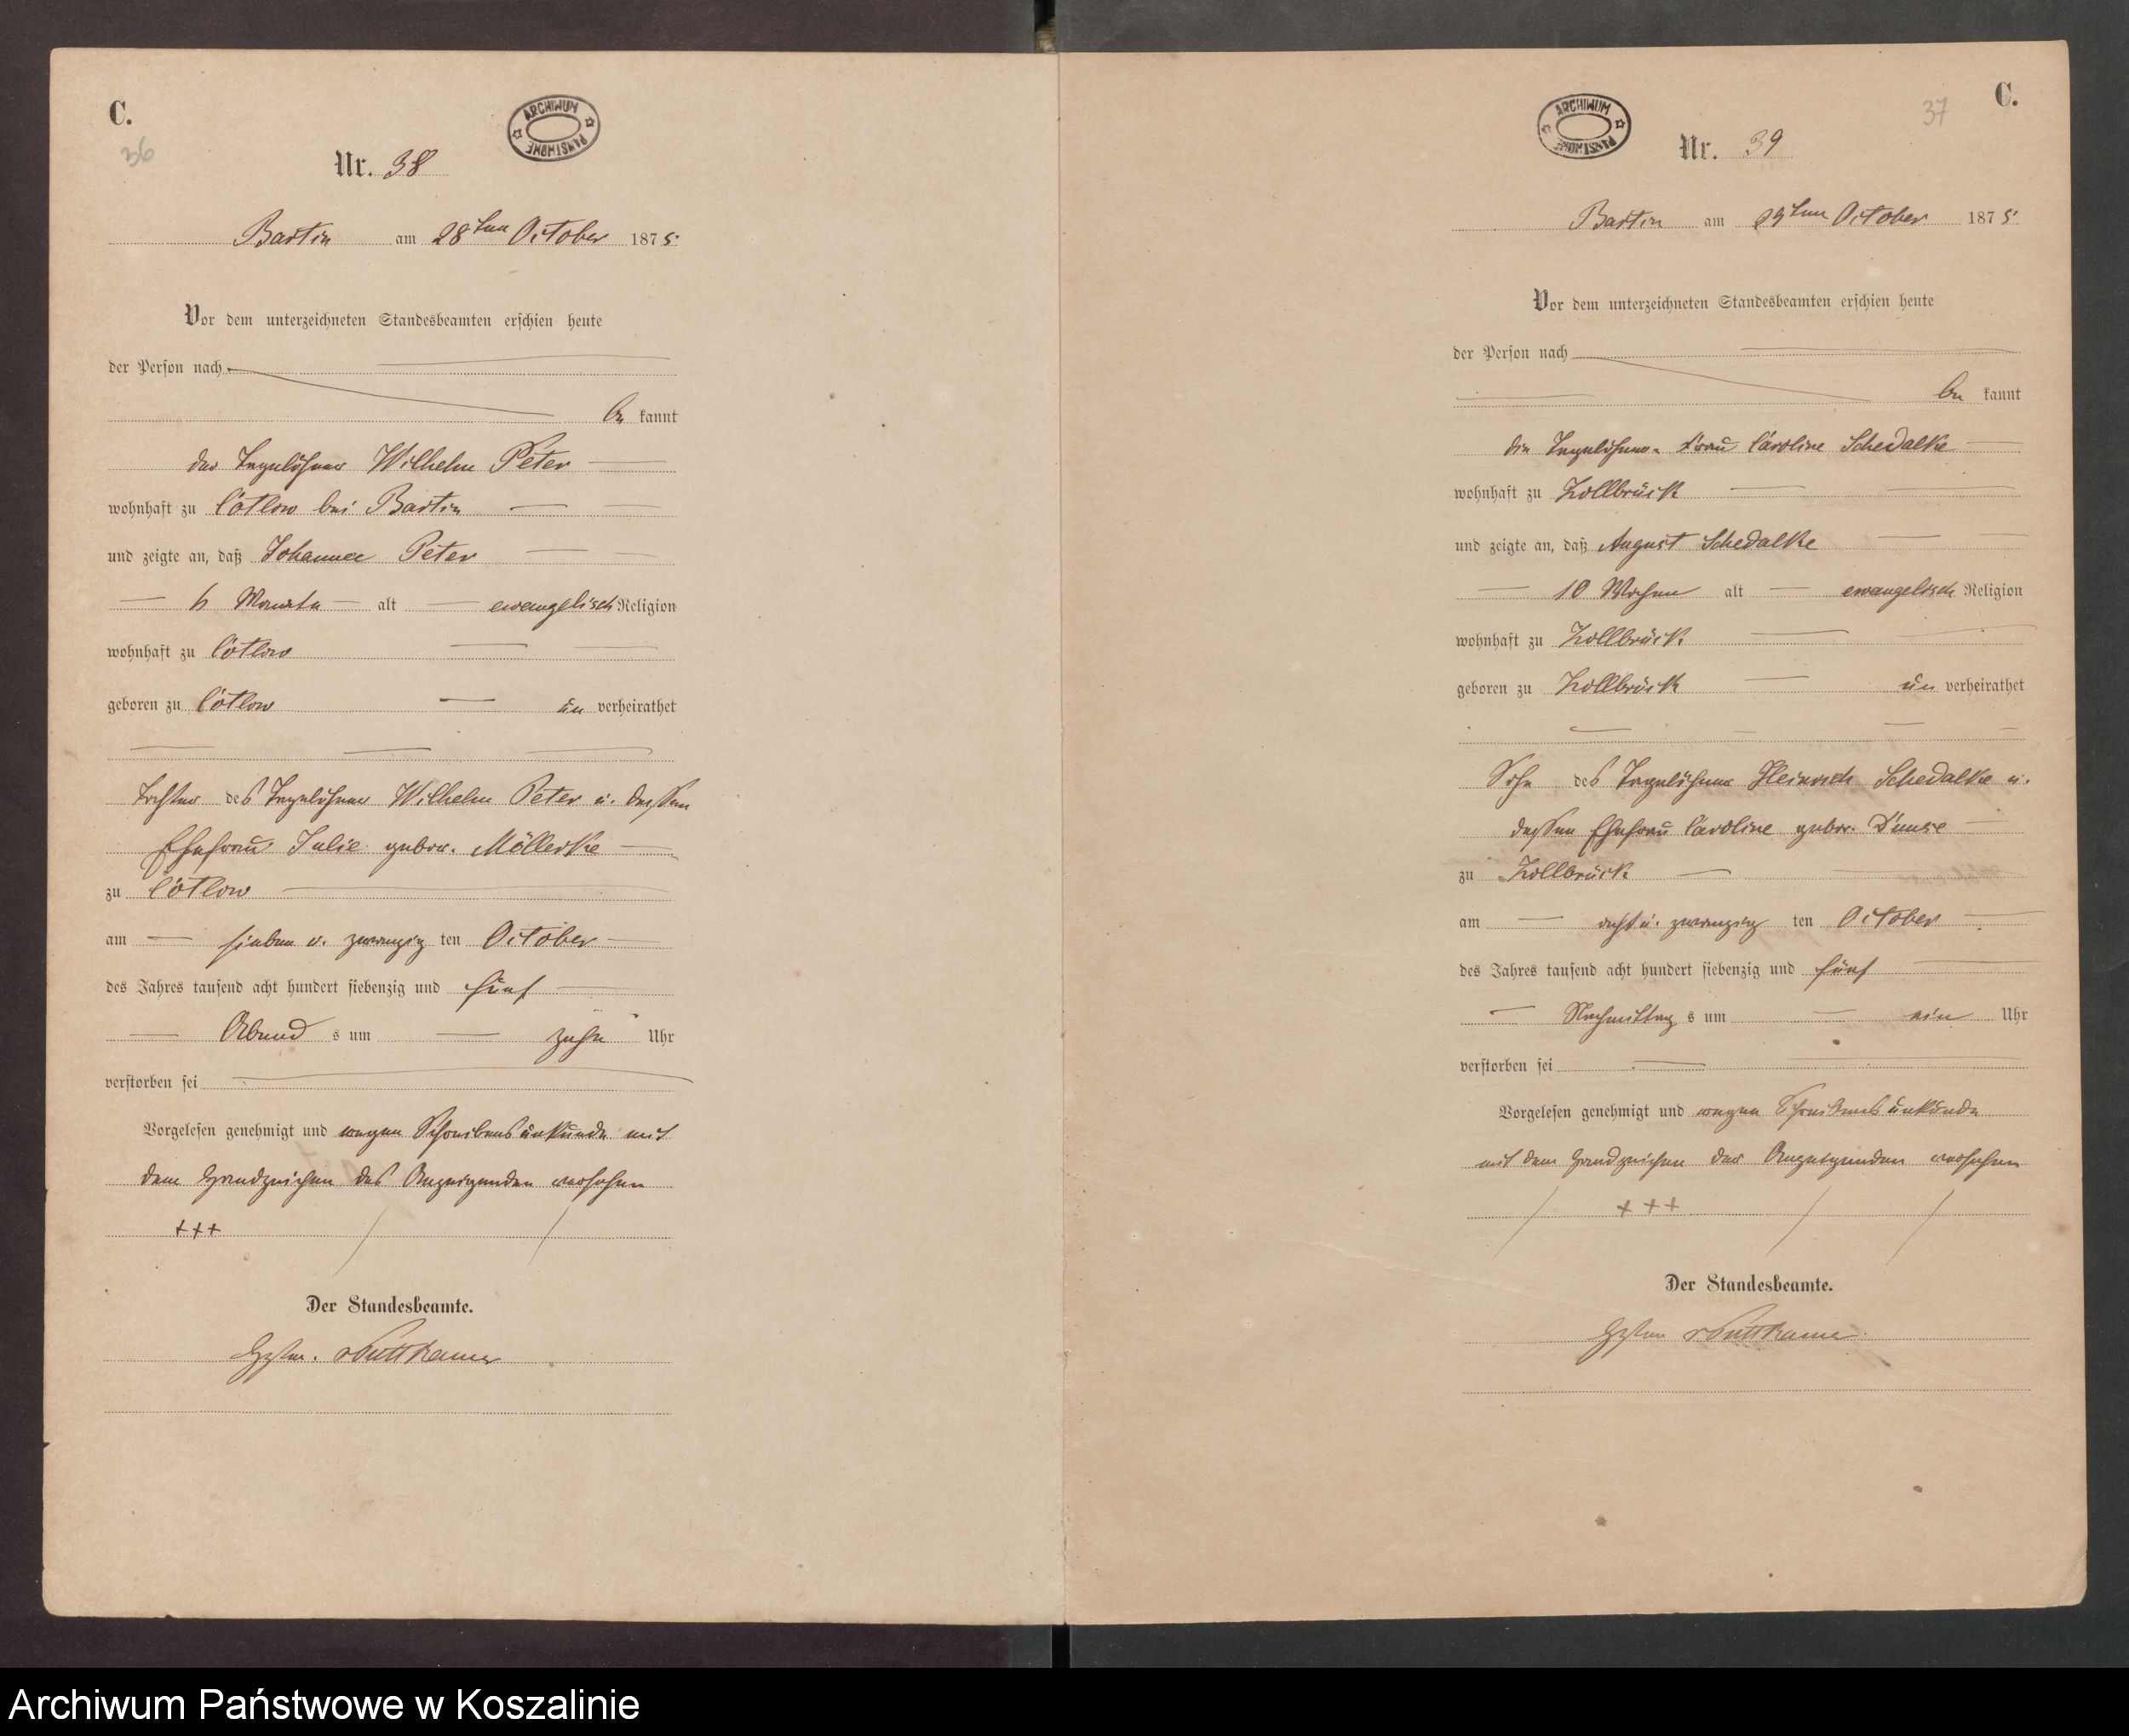 C.
36
ARCHIWUM PAŃSTWOWE
Nr. 38
Bartin am 28ten October 1875.
Vor dem unterzeichneten Standesbeamten erschien heute
der Person nach
be kannt
der Tagelöhner Wilhelm Peter
wohnhaft zu Cötlow bei Bartin
und zeigte an, daß Johanne Peter
6 Monate alt evangelisch Religion
wohnhaft zu Cötlow
geboren zu Cötlow un verheirathet
Tochter des Tagelöhner Wilhelm Peter u. dessen
Ehefrau Julie gebor.
zu Cötlow
am sieben u. zwanzig ten October
des Jahres tausend acht hundert siebenzig und fünf
Abend s um zehn Uhr
verstorben sei
Vorgelesen genehmigt und wegen Schreibensunkunde mit
dem Handzeichen des Anzeigenden versehen
+++
Der Standesbeamte.
v Puttkamer
C.
37
ARCHIWUM PAŃSTWOWE
Nr. 39
Bartin am 29ten October 1875.
Vor dem unterzeichneten Standesbeamten erschien heute
der Person nach
be kannt
die Tagelöhner-Frau Caroline Schedalke
wohnhaft zu Zollbrück
und zeigte an, daß August Schedalke
10 Wochen alt evangelisch Religion
wohnhaft zu Zollbrück
geboren zu Zollbrück un verheirathet
Sohn des Tagelöhner Heinrich Schedalke u.
dessen Ehefrau Caroline gebor.
zu Zollbrück
am acht u. zwanzig ten October
des Jahres tausend acht hundert siebenzig und fünf
Nachmittag s um ein Uhr
verstorben sei
Vorgelesen genehmigt und wegen Schreibensunkunde
mit dem Handzeichen der Anzeigenden versehen
+++
Der Standesbeamte.
v Puttkamer
Archiwum Państwowe w Koszalinie